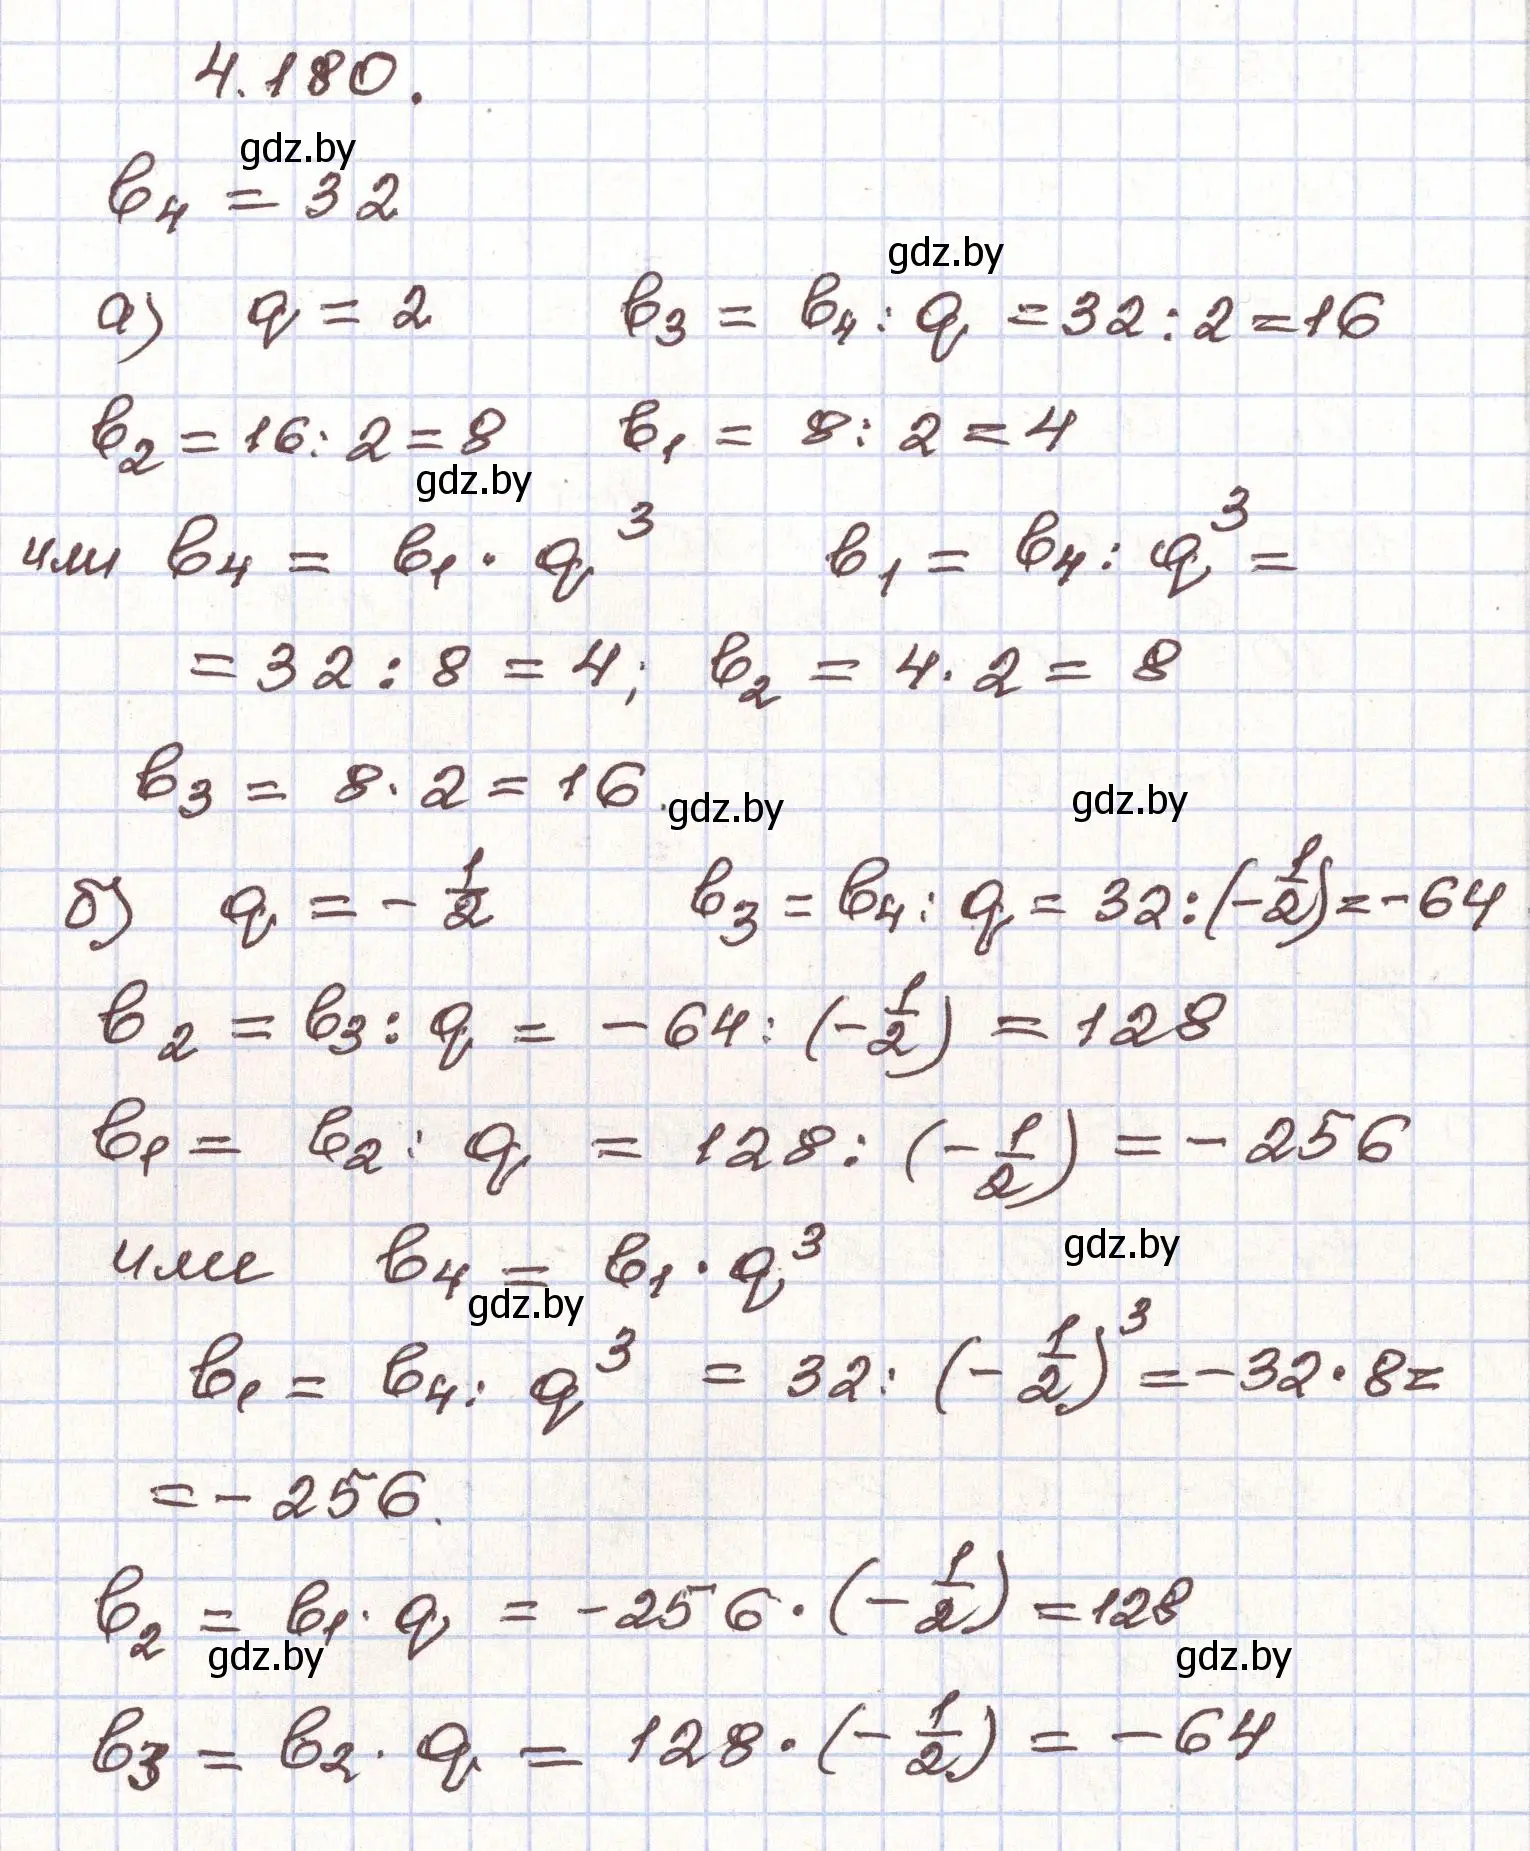 4.180.
gdz.by
b₄ = 32
gdz.by
а) q = 2 b₃ = b₄ : q = 32 : 2 = 16
b₂ = 16 : 2 = 8 b₁ = 8 : 2 = 4
gdz.by
или b₄ = b₁ · q³ b₁ = b₄ : q³ =
= 32 : 8 = 4; b₂ = 4 · 2 = 8
b₃ = 8 · 2 = 16.
gdz.by gdz.by
б) q = -1/2 b₃ = b₄ : q = 32 : (-1/2) = -64
b₂ = b₃ : q = -64 : (-1/2) = 128
b₁ = b₂ : q = 128 : (-1/2) = -256
или b₄ = b₁ · q³
gdz.by
gdz.by
b₁ = b₄ : q³ = 32 : (-1/2)³ = -32 · 8 =
= -256.
b₂ = b₁ · q = -256 · (-1/2) = 128
gdz.by gdz.by
b₃ = b₂ · q = 128 · (-1/2) = -64